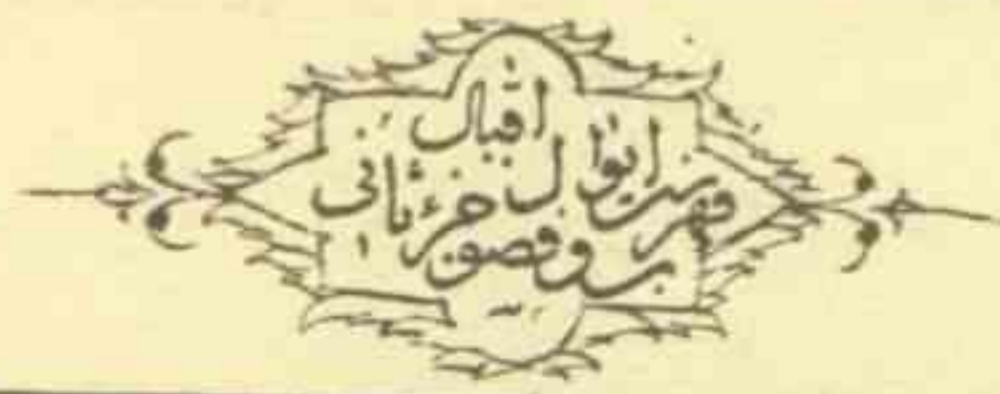 فهرست ابواب و فصول جزء ثانی اقبال